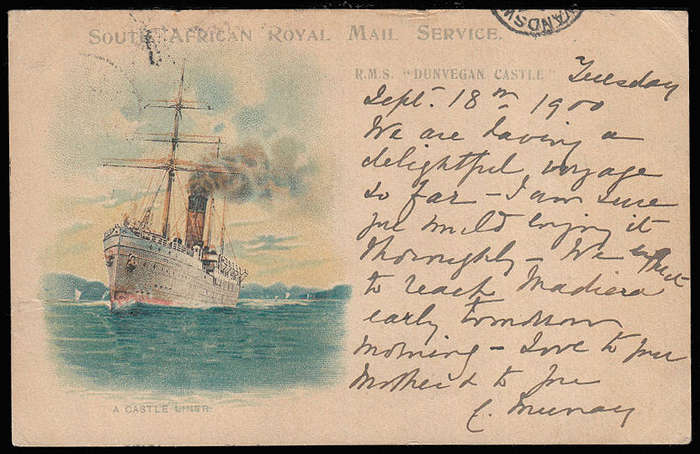 WANDSW
SOUTH AFRICAN ROYAL MAIL SERVICE.
R.M.S. "DUNVEGAN CASTLE"
Tuesday
Sept. 18th 1900
We are having a
delightful voyage
so far - I am sure
you would enjoy it
thoroughly - We expect
to reach Madiera
early tomorrow
morning - Love to your
Mother & to you
C. Murray
A CASTLE LINER.